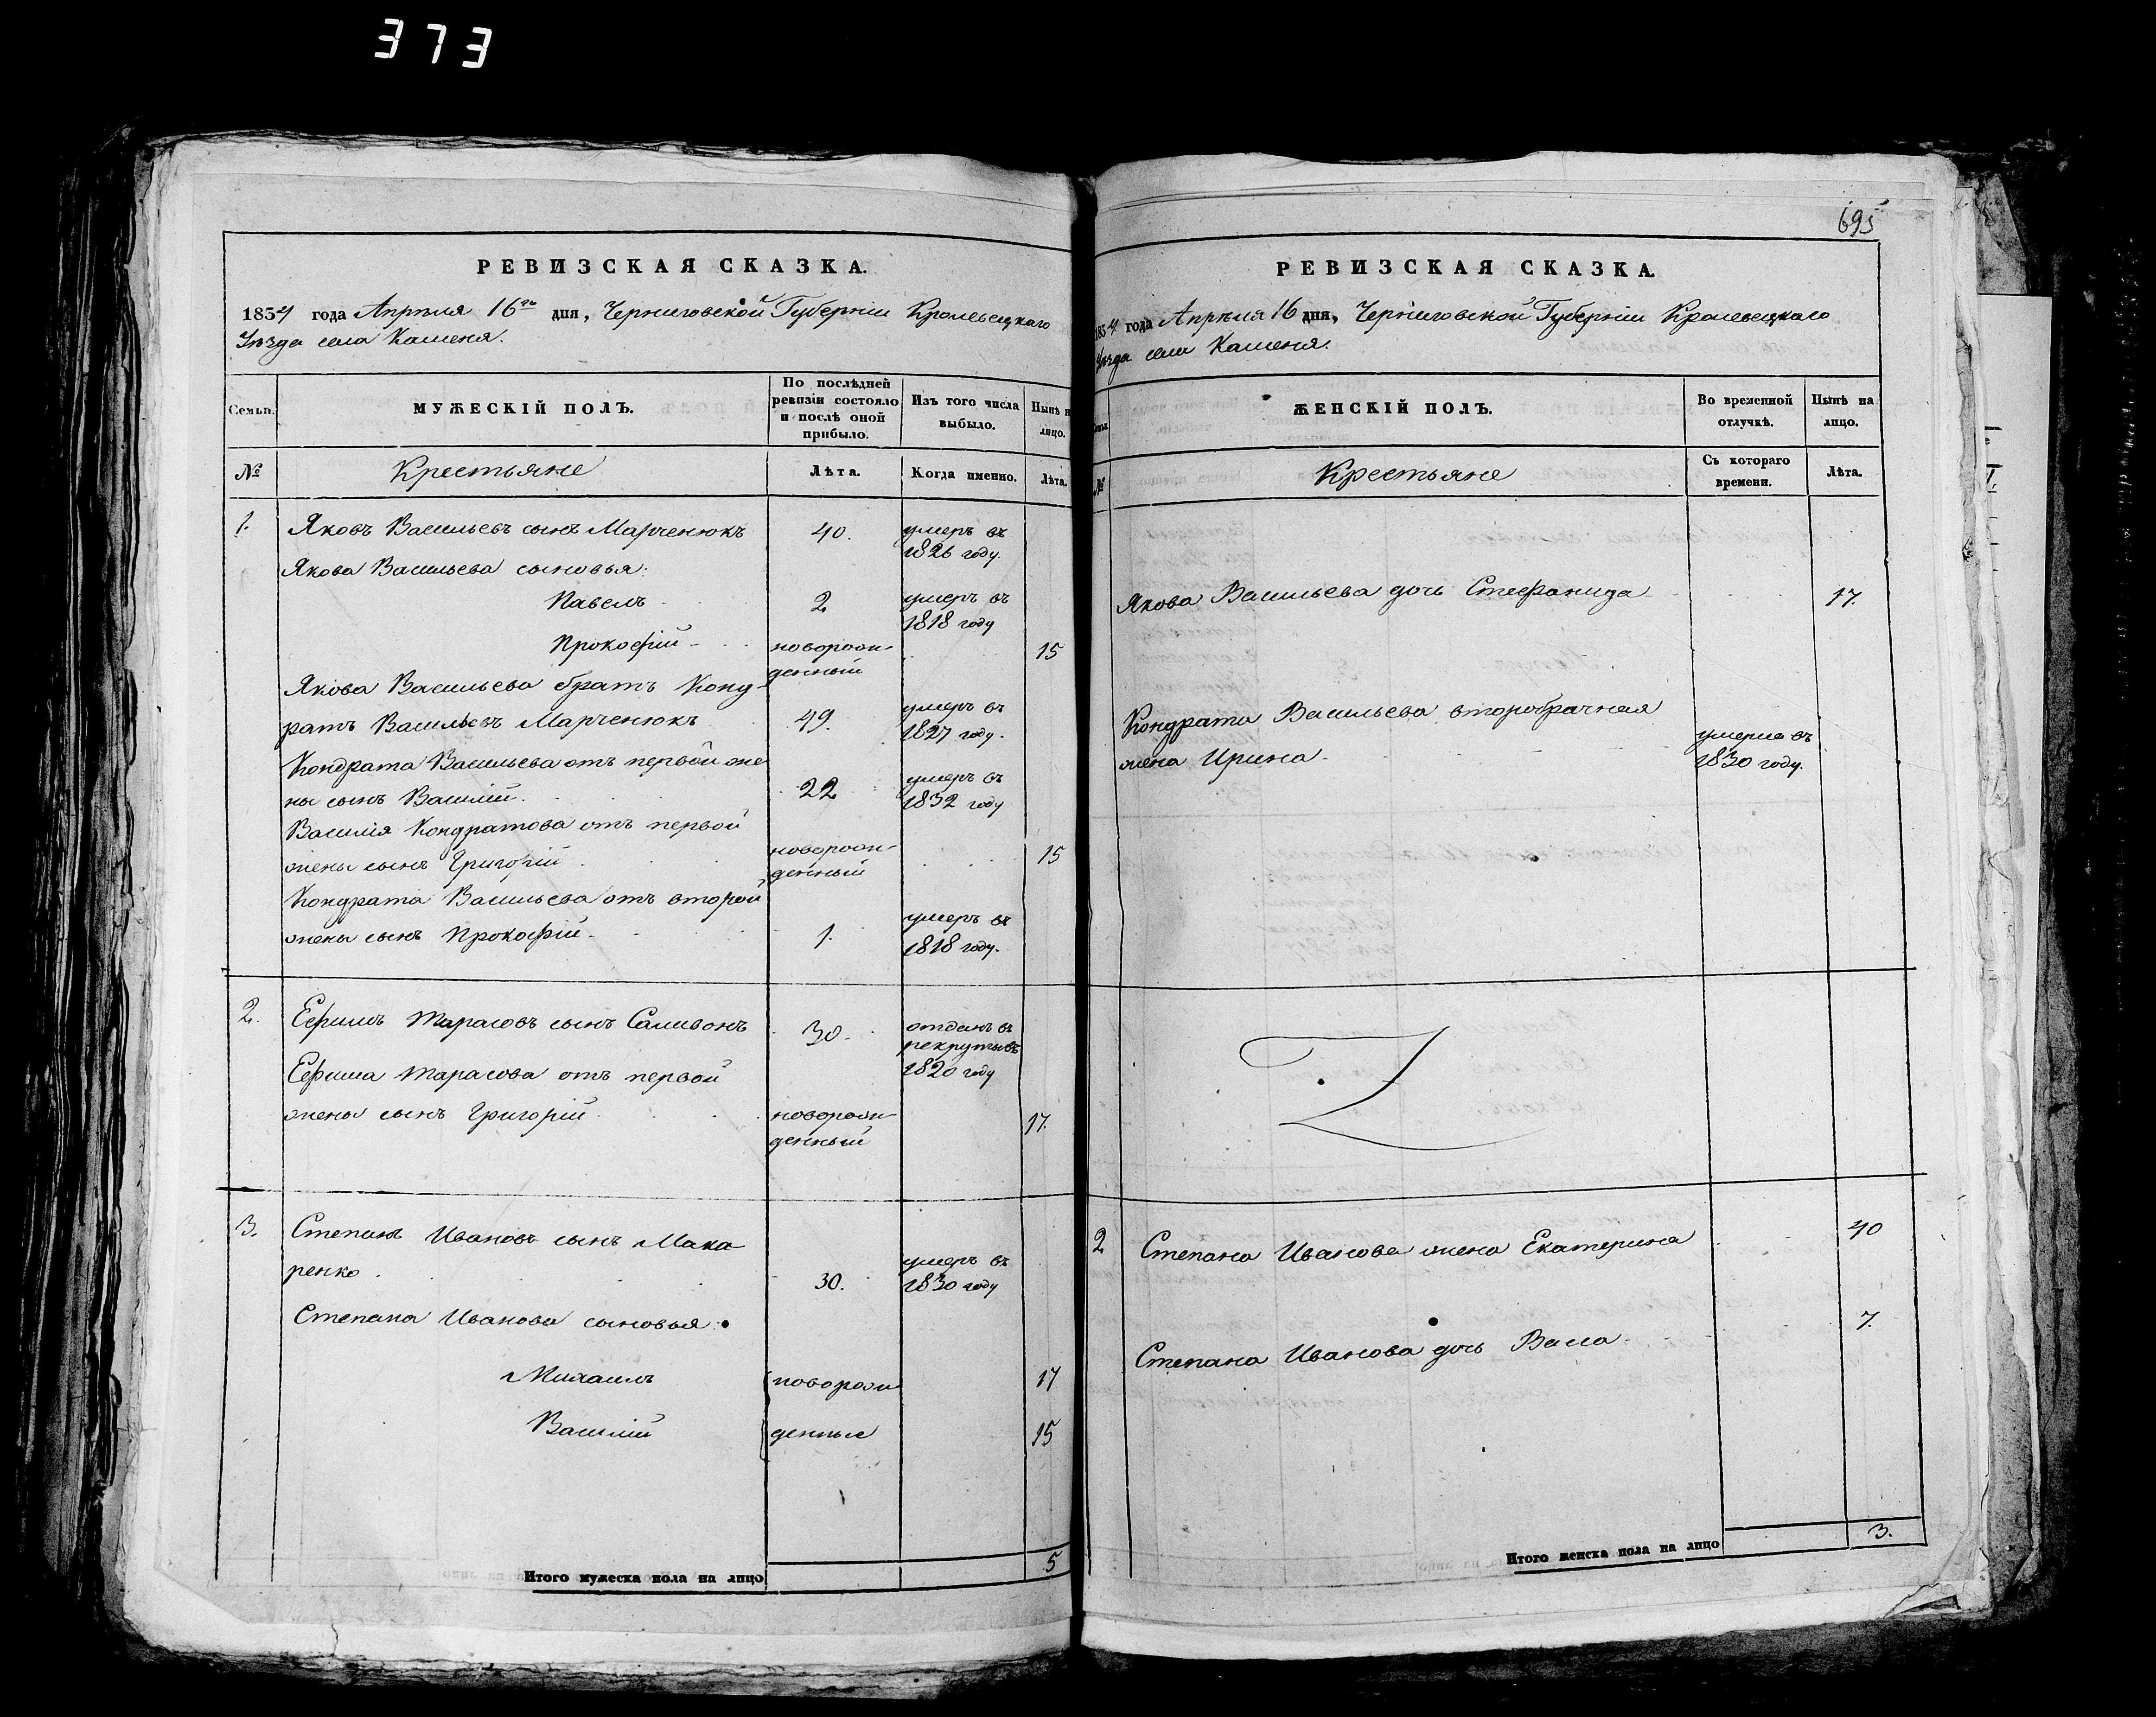 373
РЕВИЗСКАЯ СКАЗКА.
1834 года Апрѣля 16го дня, Черниговской Губерніи Кролевецкаго
Уѣзда села Каменя.
Семьи.
МУЖЕСКІЙ ПОЛЪ.
По послѣдней ревизіи состояло и послѣ оной прибыло.
Изъ того числа выбыло.
Нынѣ на лицо.
№
Крестьяне
Лѣта.
Когда именно.
Лѣта.
1. Яковъ Васильевъ сынъ Марченюкъ 40. умеръ въ 1826 году.
Якова Васильева сыновья:
Павелъ 2 умеръ въ 1818 году
Прокофій новорожденный 15
Якова Васильева братъ Конд-
ратъ Васильевъ Марченюкъ 49. умеръ въ 1827 году.
Кондрата Васильева отъ первой же-
ны сынъ Василій. 22 умеръ въ 1832 году
Василія Кондратова отъ первой
жены сынъ Григорій новорожденный 15
Кондрата Васильева отъ второй
жены сынъ Прокофій 1. умеръ въ 1818 году.
2. Ефимъ Тарасовъ сынъ Саливонъ 30. отданъ въ рекруты въ 1820 году
Ефима Тарасова отъ первой
жены сынъ Григорій новорожденный 17.
3. Степанъ Ивановъ сынъ Мака
ренко 30. умеръ въ 1830 году
Степана Иванова сыновья:
Михаилъ новорож 17
Василій денные 15
Итого мужеска пола на лицо 5
695
РЕВИЗСКАЯ СКАЗКА.
1834 года Апрѣля 16 дня, Черниговской Губерніи Кролевецкаго
Уѣзда села Каменя.
Семьи.
ЖЕНСКІЙ ПОЛЪ.
Во временной отлучкѣ.
Нынѣ на лицо.
№
Крестьяне
Съ котораго времени.
Лѣта.
Якова Васильева дочь Стефанида 17.
Кондрата Васильева второбрачная
жена Ирина умерла въ 1830 году.
2 Степана Иванова жена Екатерина 40
Степана Иванова дочь Васа 7.
Итого женска пола на лицо 3.